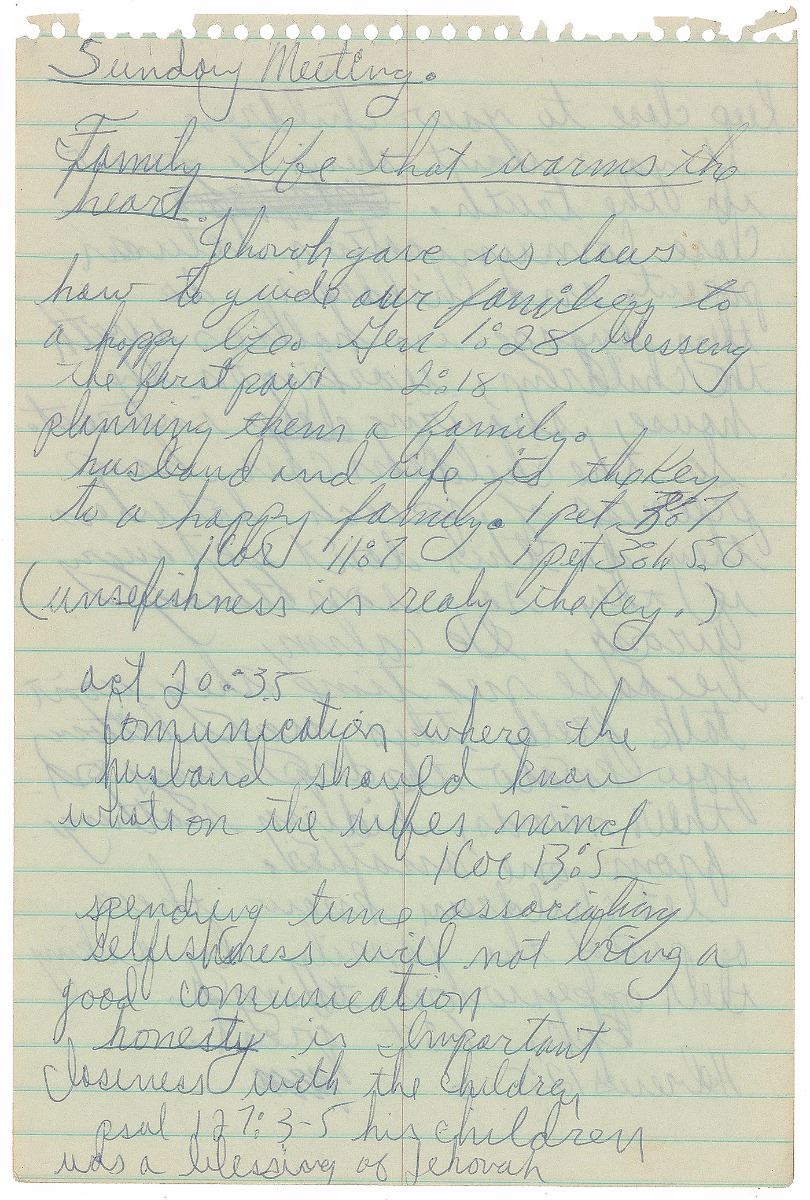 Sunday Meeting.
Family life that warms the
heart
Jehovah gave us laws
how to guide our families to
a happy life. Gen 1:28 blessing
the first pair 2:18
planning them a family.
husband and wife its the Key
to a happy family. 1 pet 3:7
1 Cor 11:7 1 pet 5:6
(unsefishness is realy the Key.)
act 20:35
Comunication where the
husband should know
whats on the wifes mind
1 Cor 13:5
spending time associating
selfishness will not bring a
good comunication
honesty is Important
Closiness with the children
psal 127:3-5 his children
was a blessing of Jehovah